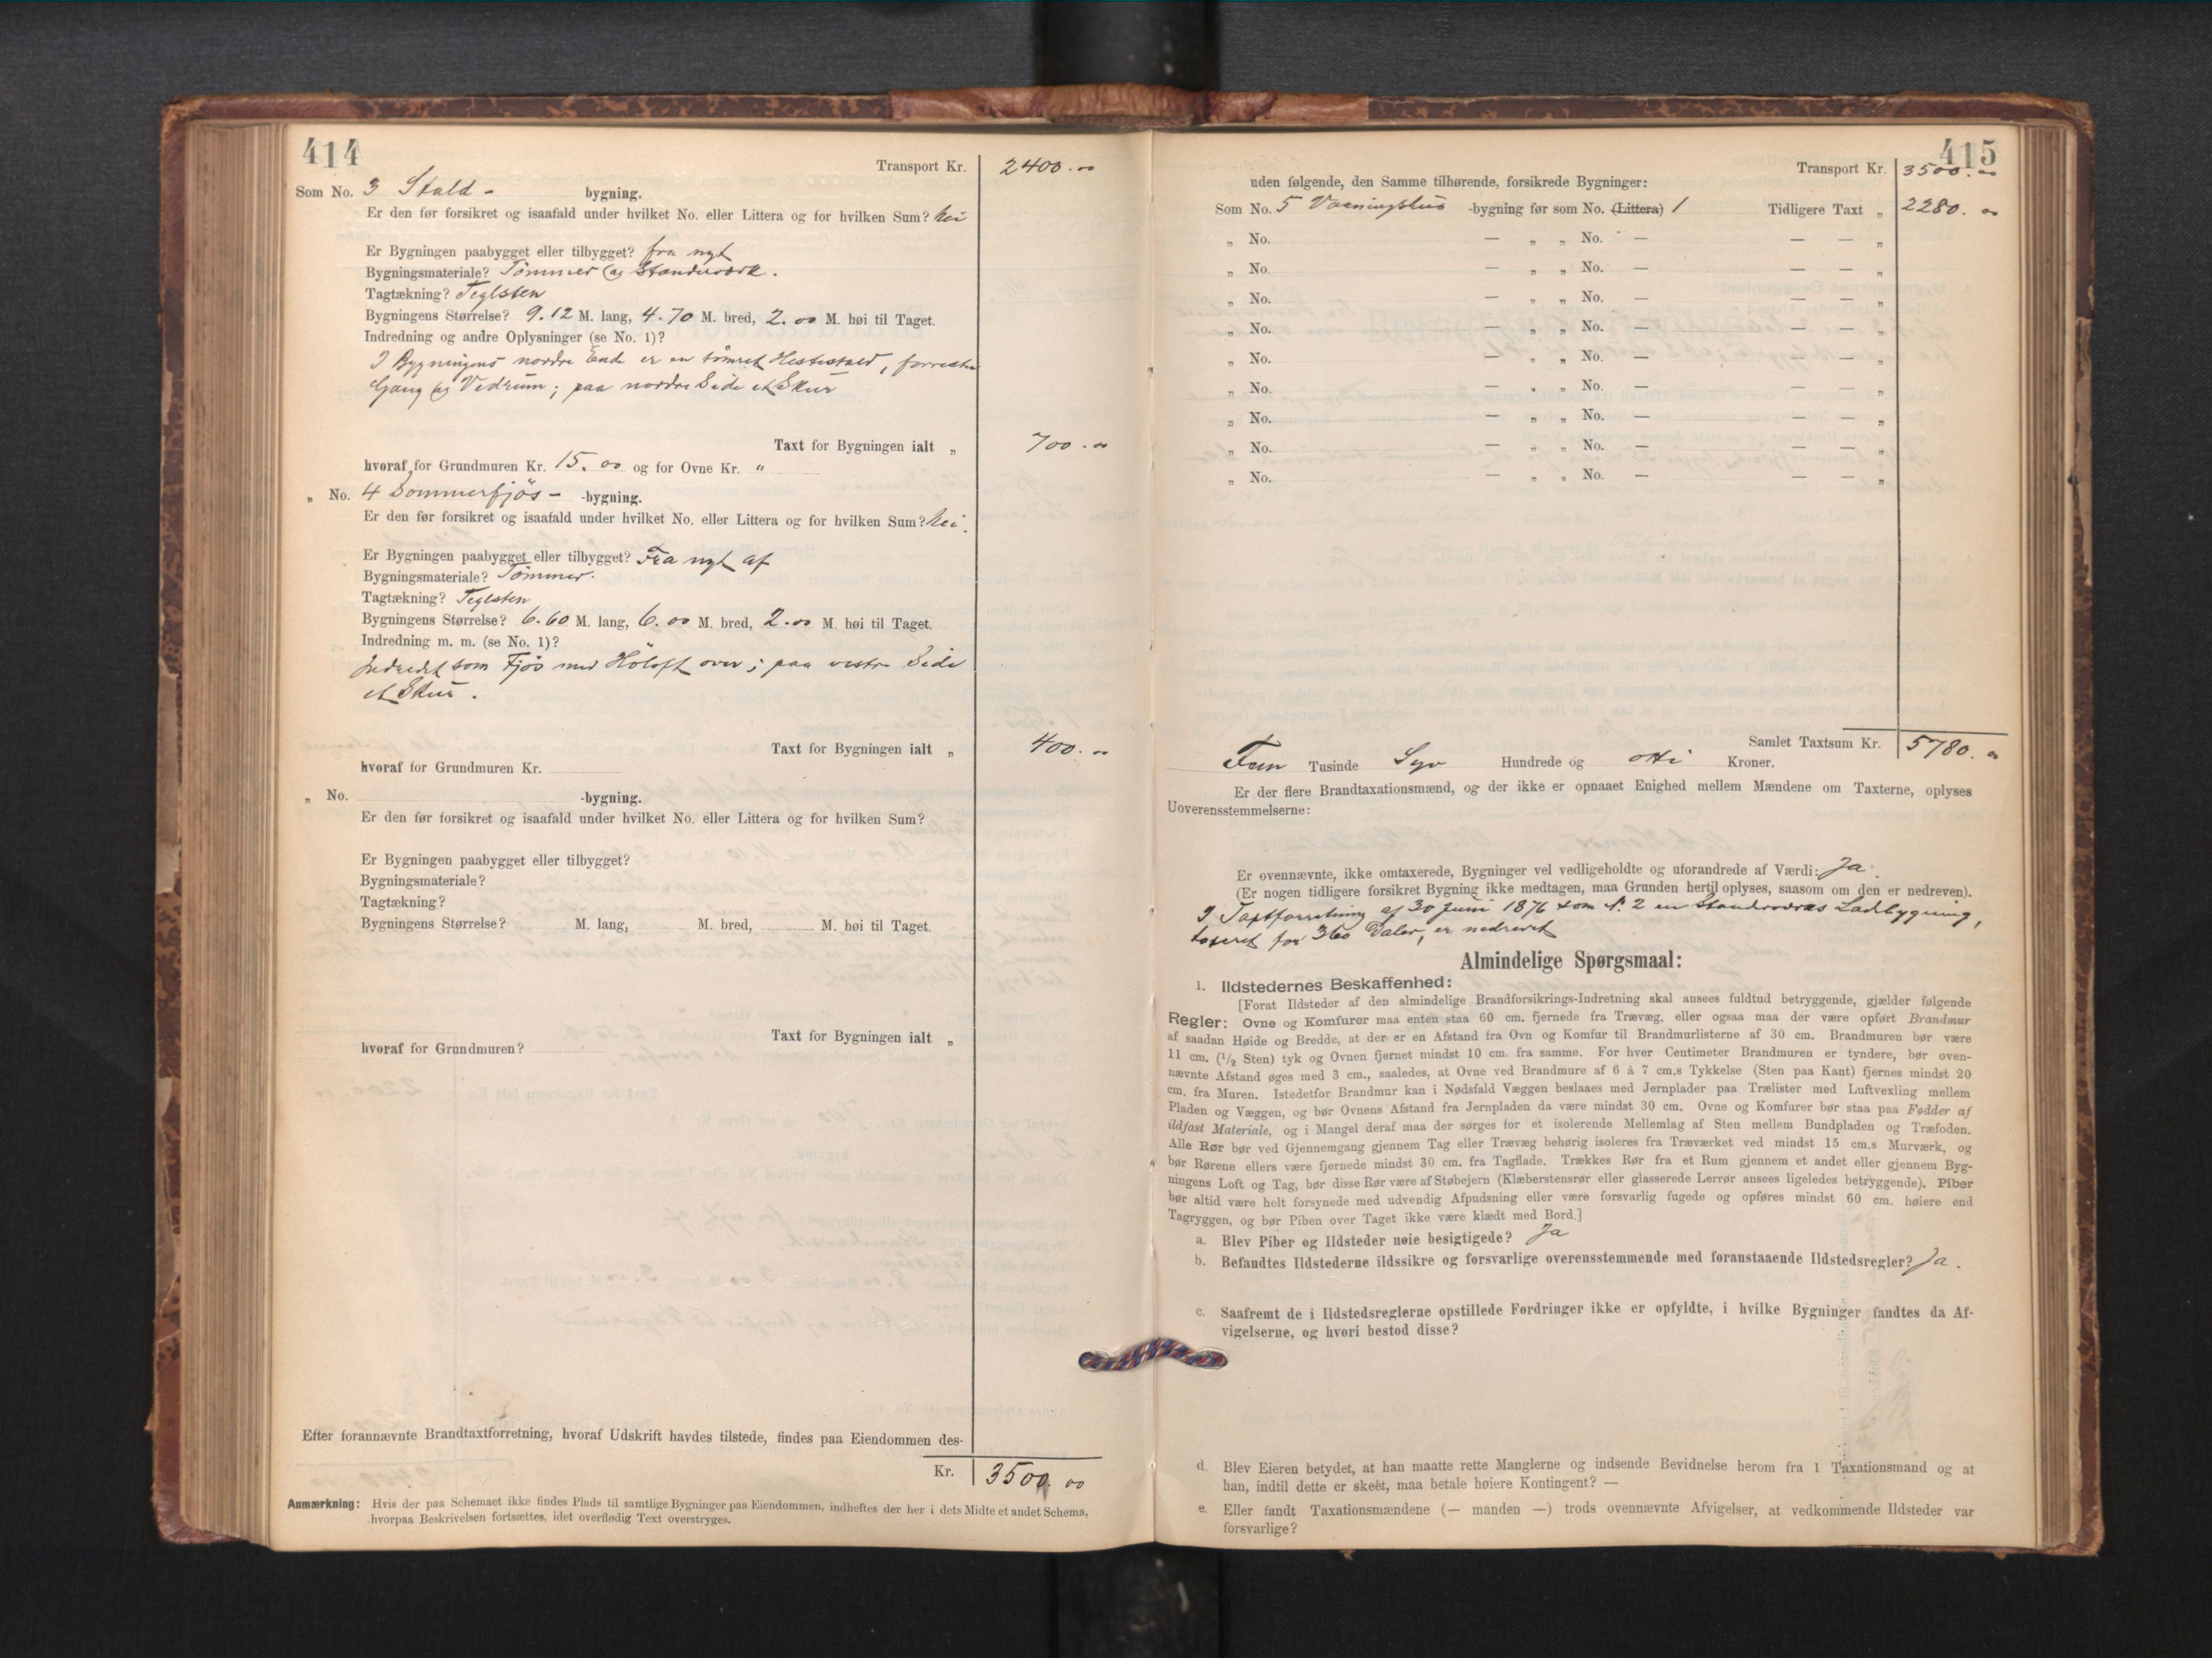 414
Transport Kr. 2400.00
Som No. 3 Stald - bygning.
Er den før forsikret og isaafald under hvilket No. eller Littera og for hvilken Sum? Nei
Er Bygningen paabygget eller tilbygget? fra nyt
Bygningsmateriale? Tømmer og Standerværk.
Tagtækning? Teglsten
Bygningens Størrelse? 9.12 M. lang, 4.70 M. bred, 2.00 M. høi til Taget.
Indredning og andre Oplysninger (se No. 1)?
I Bygningens nordre Ende er en tømret Hestestald, forresten
Gang og Vedrum; paa nordre Side et Skur
Taxt for Bygningen ialt „ 700.00
hvoraf for Grundmuren Kr. 15.00 og for Ovne Kr. "
„ No. 4 Sommerfjös - -bygning.
Er den før forsikret og isaafald under hvilket No. eller Littera og for hvilken Sum? Nei.
Er Bygningen paabygget eller tilbygget? Fra nyt af
Bygningsmateriale? Tømmer.
Tagtækning? Teglsten
Bygningens Størrelse? 6.60 M. lang, 6.00 M. bred, 2.00 M. høi til Taget.
Indredning m. m. (se No. 1)?
Indredet som Fjös med Höloft over; paa vestre Side
et Skur.
Taxt for Bygningen ialt „ 400.00
hvoraf for Grundmuren Kr.
„ No. -bygning.
Er den før forsikret og isaafald under hvilket No. eller Littera og for hvilken Sum?
Er Bygningen paabygget eller tilbygget?
Bygningsmateriale?
Tagtækning?
Bygningens Størrelse? M. lang, M. bred, M. høi til Taget.
Taxt for Bygningen ialt „
hvoraf for Grundmuren?
Efter forannævnte Brandtaxtforretning, hvoraf Udskrift havdes tilstede, findes paa Eiendommen des-
Kr. 3500.00
Anmærkning: Hvis der paa Schemaet ikke findes Plads til samtlige Bygninger paa Eiendommen, indheftes der her i dets Midte et andet Schema,
hvorpaa Beskrivelsen fortsættes, idet overflødig Text overstryges.
415
Transport Kr. 3500.00
uden følgende, den Samme tilhørende, forsikrede Bygninger:
Som No. 5 Vaaningshus -bygning før som No. (Littera) 1 Tidligere Taxt „ 2280.00
„ No. — „ „ No. — — — „
„ No. — „ „ No. — — — „
„ No. — „ „ No. — — — „
„ No. — „ „ No. — — — „
„ No. — „ „ No. — — — „
„ No. — „ „ No. — — — „
„ No. — „ „ No. — — — „
„ No. — „ „ No. — — — „
„ No. — „ „ No. — — — „
Samlet Taxtsum Kr. 5780.00
Fem Tusinde Syv Hundrede og otti Kroner.
Er der flere Brandtaxationsmænd, og der ikke er opnaaet Enighed mellem Mændene om Taxterne, oplyses
Uoverensstemmelserne:
Er ovennævnte, ikke omtaxerede, Bygninger vel vedligeholdte og uforandrede af Værdi: Ja.
(Er nogen tidligere forsikret Bygning ikke medtagen, maa Grunden hertil oplyses, saasom om den er nedreven).
I Taxtforretning af 30 Juni 1876 som N. 2 en Standerværks Ladbygning,
taxeret for 360 Daler, er nedrevet
Almindelige Spørgsmaal:
1. Ildstedernes Beskaffenhed:
[Forat Ildsteder af den almindelige Brandforsikrings-Indretning skal ansees fuldtud betryggende, gjælder følgende
Regler: Ovne og Komfurer maa enten staa 60 cm. fjernede fra Trævæg, eller ogsaa maa der være opført Brandmur
af saadan Høide og Bredde, at der er en Afstand fra Ovn og Komfur til Brandmurlisterne af 30 cm. Brandmuren bør være
11 cm. (1/2 Sten) tyk og Ovnen fjernet mindst 10 cm. fra samme. For hver Centimeter Brandmuren er tyndere, bør oven-
nævnte Afstand øges med 3 cm., saaledes, at Ovne ved Brandmure af 6 à 7 cm.s Tykkelse (Sten paa Kant) fjernes mindst 20
cm. fra Muren. Istedetfor Brandmur kan i Nødsfald Væggen beslaaes med Jernplader paa Trælister med Luftvexling mellem
Pladen og Væggen, og bør Ovnens Afstand fra Jernpladen da være mindst 30 cm. Ovne og Komfurer bør staa paa Fødder af
ildfast Materiale, og i Mangel deraf maa der sørges for et isolerende Mellemlag af Sten mellem Bundpladen og Træfoden.
Alle Rør bør ved Gjennemgang gjennem Tag eller Trævæg behørig isoleres fra Træværket ved mindst 15 cm.s Murværk, og
bør Rørene ellers være fjernede mindst 30 cm. fra Tagflade. Trækkes Rør fra et Rum gjennem et andet eller gjennem Byg-
ningens Loft og Tag, bør disse Rør være af Støbejern (Klæberstensrør eller glasserede Lerrør ansees ligeledes betryggende). Piber
bør altid være helt forsynede med udvendig Afpudsning eller være forsvarlig fugede og opføres mindst 60 cm. høiere end
Tagryggen, og bør Piben over Taget ikke være klædt med Bord.]
a. Blev Piber og Ildsteder nøie besigtigede? Ja
b. Befandtes Ildstederne ildssikre og forsvarlige overensstemmende med foranstaaende Ildstedsregler? Ja.
c. Saafremt de i Ildstedsreglerne opstillede Fordringer ikke er opfyldte, i hvilke Bygninger fandtes da Af-
vigelserne, og hvori bestod disse?
d. Blev Eieren betydet, at han maatte rette Manglerne og indsende Bevidnelse herom fra 1 Taxationsmand og at
han, indtil dette er skeet, maa betale høiere Kontingent? —
e. Eller fandt Taxationsmændene (— manden —) trods ovennævnte Afvigelser, at vedkommende Ildsteder var
forsvarlige?